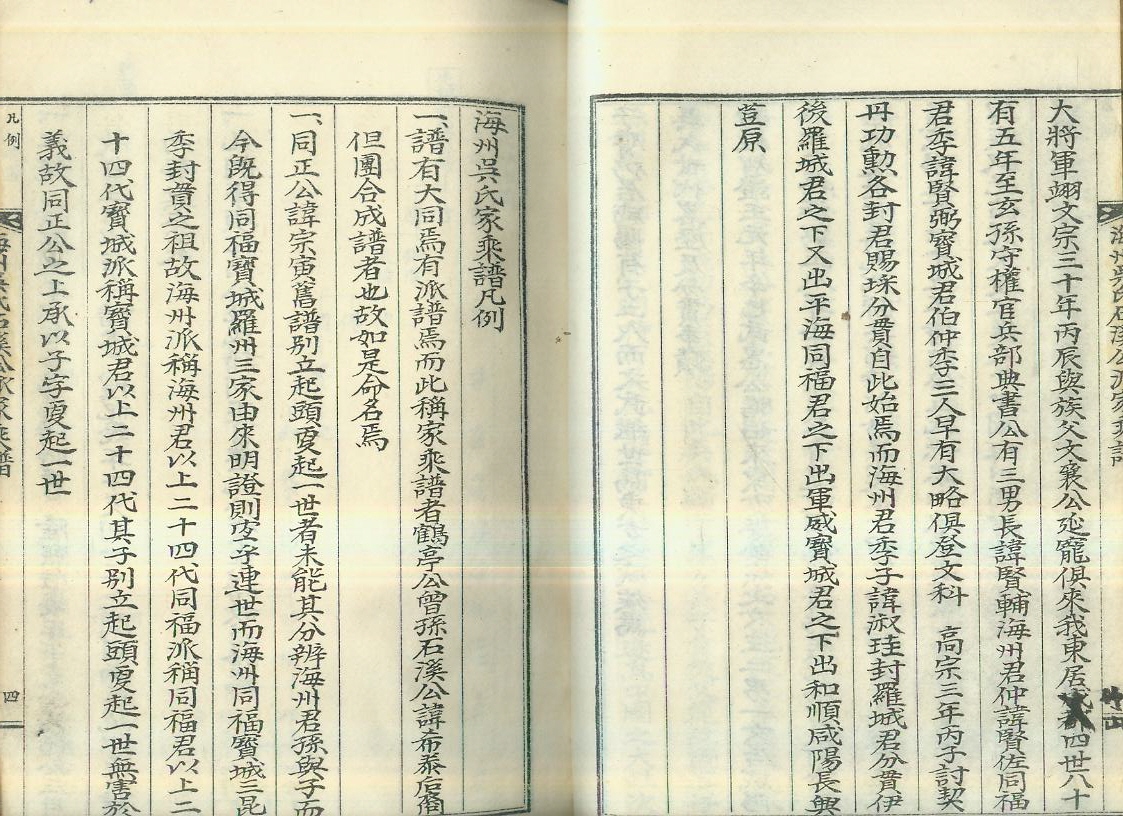 大將軍翊文宗三十年丙辰與族父文襄公延寵俱來我東居四世八十
有五年至玄孫守權官兵部典書公有三男長諱賢輔海州君仲諱賢佐同福
君季諱賢弼寶城君伯仲季三人早有大略俱登文科 高宗三年丙子討契
丹功勳各封君賜垛分貫自此始焉而海州君季子諱淑珪封羅城君分貫伊
後羅城君之下又出平海同福君之下出軍威寶城君之下出和順咸陽長興
荳原
海州吳氏石溪公派家乘譜
海州吳氏家乘譜凡例
一、譜有大同焉有派譜焉而此稱家乘譜者鶴亭公曾孫石溪公諱希泰后裔
但團合成譜者也故如是命名焉
一、同正公諱宗寅舊譜別立起頭更起一世者未能其分辨海州君孫與子而
今旣得同福寶城羅州三家由來明證則宜乎連世而海州同福寶城三昆
季封貫之祖故海州派稱海州君以上二十四代同福派稱同福君以上二
十四代寶城派稱寶城君以上二十四代其子別立起頭更起一世無害於
義故同正公之上承以子字更起一世
凡例
海州吳氏石溪公派家乘譜
四